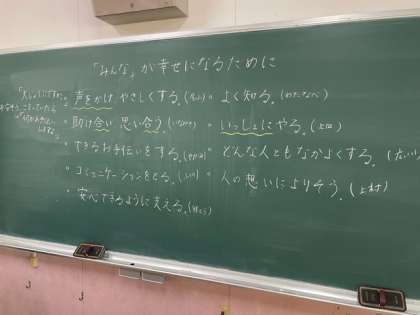 「みんな」が幸せになるために
声をかけ やさしくする。
よく知る。(わたなべ)
助け合い 思い合う。
いっしょにやる。(上田)
できるお手伝いをする。
どんな人ともなかよくする。
コミュニケーションをとる。
人の想いによりそう。(上村)
安心できるように支える。